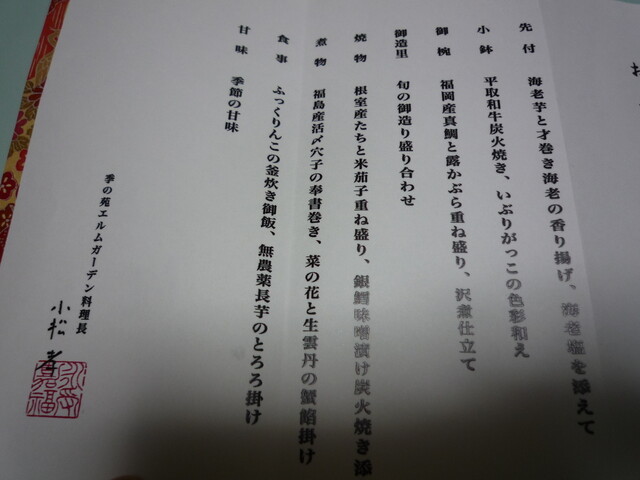 お
先付　海老芋と才巻き海老の香り揚げ、海老塩を添えて
小鉢　平取和牛炭火焼き、いぶりがっこの色彩和え
御椀　福岡産真鯛と露かぶら重ね盛り、沢煮仕立て
御造里　旬の御造り盛り合わせ
焼物　根室産たちと米茄子重ね盛り、銀鱈味噌漬け炭火焼き添
煮物　福島産活〆穴子の奉書巻き、菜の花と生雲丹の蟹餡掛け
食事　ふっくりんこの釜炊き御飯、無農薬長芋のとろろ掛け
甘味　季節の甘味
季の苑エルムガーデン料理長
小松